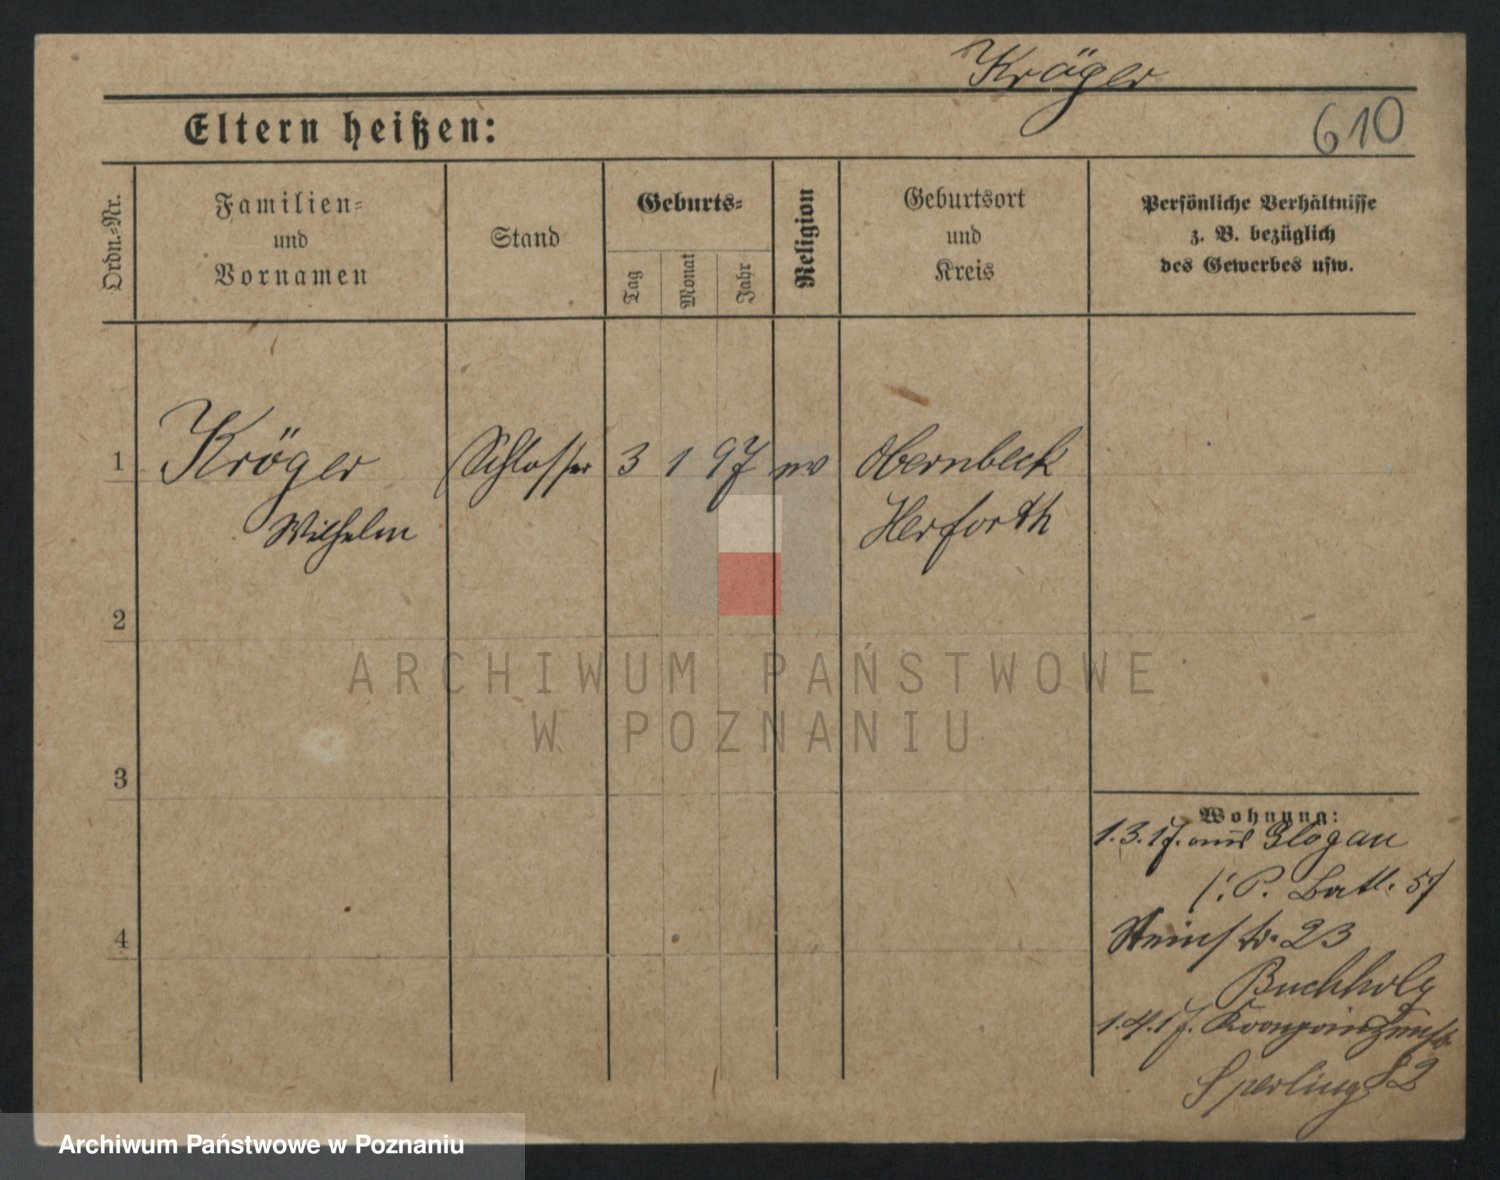 Kröger
610
Eltern heißen:
Ordn.-Nr.
Familien-
und
Vornamen
Stand
Geburts-
Tag
Monat
Jahr
Religion
Geburtsort
und
Kreis
Persönliche Verhältnisse
z. B. bezüglich
des Gewerbes usw.
1 Kröger Schlosser 3 1 97 Obernbeck
Wilhelm Herforth
2
3
4
Wohnung:
1.3.17. aus Glogau
P. Batl. 5
Steinstr. 23
Buchholz
1.4.17. Kronprinzenstr.
Sperling 82
ARCHIWUM PAŃSTWOWE
W POZNANIU
Archiwum Państwowe w Poznaniu